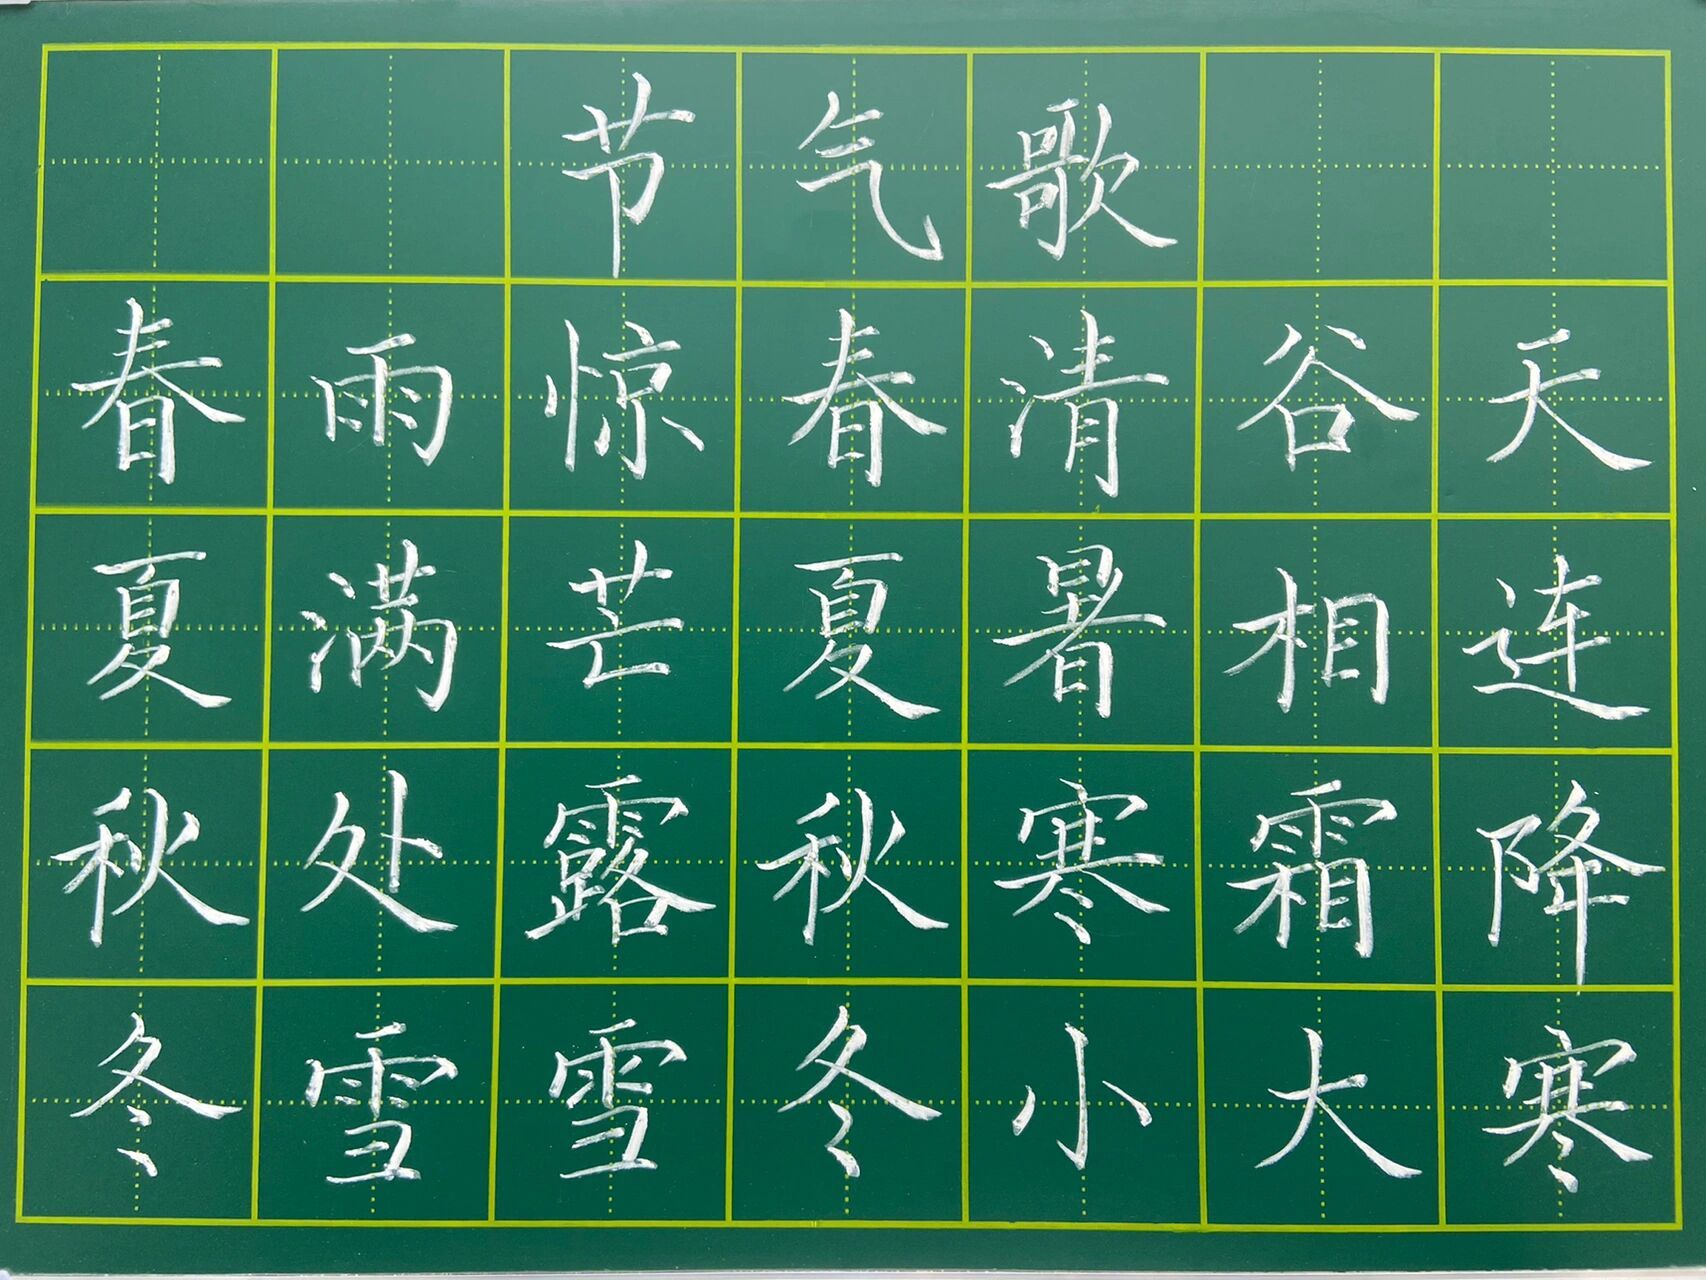 节气歌
春雨惊春清谷天
夏满芒夏暑相连
秋处露秋寒霜降
冬雪雪冬小大寒